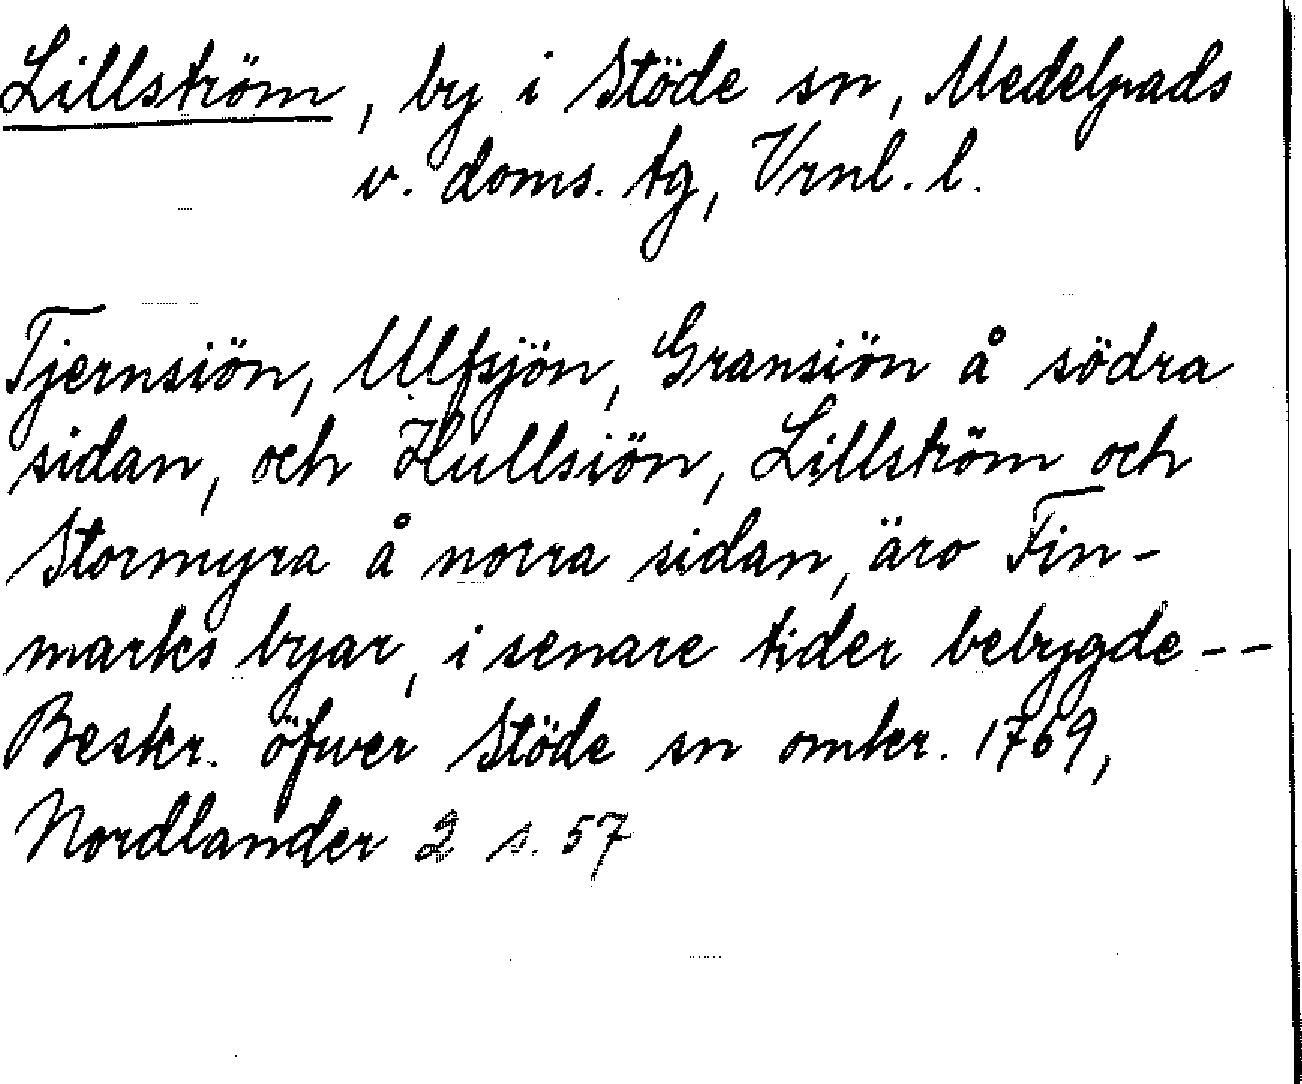 Lillström, by i Stöde sn, Medelpads
v. doms. tg, Vrnl. l.
Tjernsiön, Ulfsjön, Gransiön å södra
sidan, och Hullsiön, Lillström och
Stormyra å norra sidan, äro Fin-
marks byar, i senare tider bebygde --
Beskr. öfwer Stöde sn omkr. 1769,
Nordlander 2 s. 57